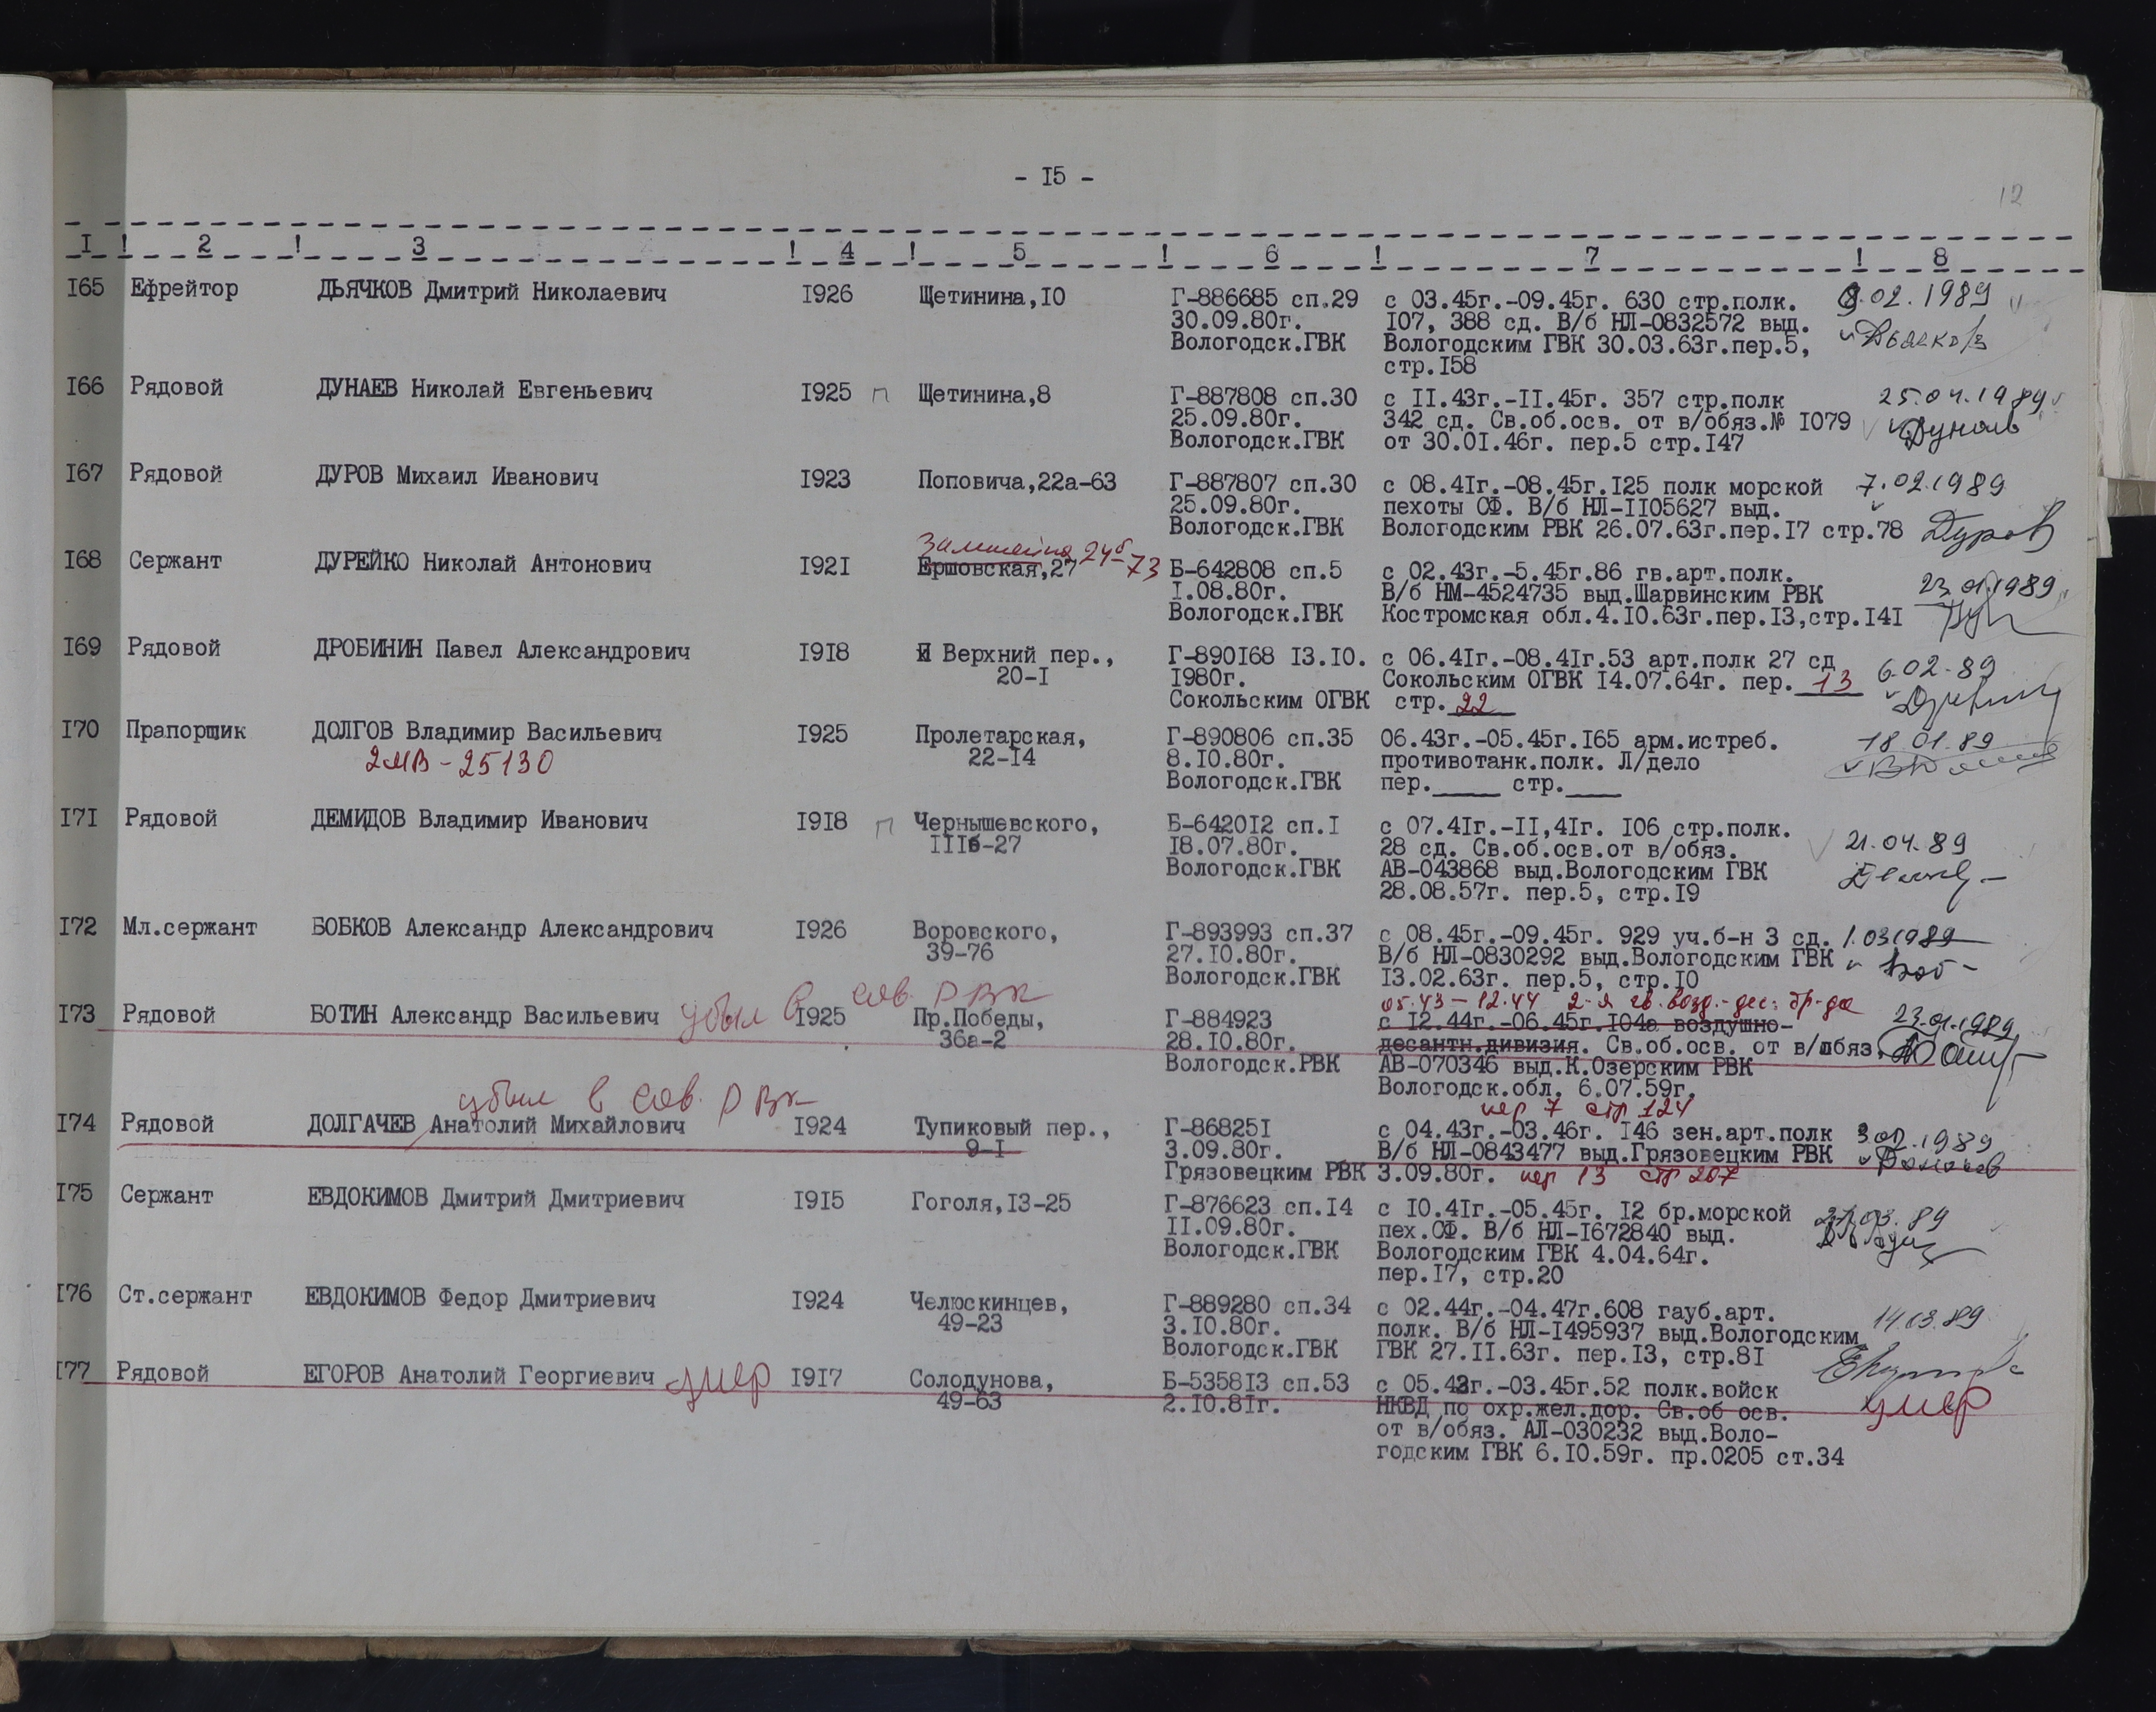 - I5 -
12
I ! 2 ! 3 ! 4 ! 5 ! 6 ! 7 ! 8
I65 Ефрейтор ДЬЯЧКОВ Дмитрий Николаевич I926 Щетинина,IO Г-886685 сп.29 с 03.45г.-09.45г. 630 стр.полк. 8.02.1989
30.09.80г. I07, 388 сд. В/б НЛ-0832572 выд.
Вологодск.ГВК Вологодским ГВК 30.03.63г.пер.5,
стр.I58
I66 Рядовой ДУНАЕВ Николай Евгеньевич I925 п Щетинина,8 Г-887808 сп.30 с II.43г.-II.45г. 357 стр.полк 25.04.1989
25.09.80г. 342 сд. Св.об.осв. от в/обяз.№ I079
Вологодск.ГВК от 30.0I.46г. пер.5 стр.I47
I67 Рядовой ДУРОВ Михаил Иванович I923 Поповича,22а-63 Г-887807 сп.30 с 08.4Iг.-08.45г.I25 полк морской 7.02.1989
25.09.80г. пехоты СФ. В/б НЛ-II05627 выд.
Вологодск.ГВК Вологодским РВК 26.07.63г.пер.I7 стр.78 Дуров
24б-73
I68 Сержант ДУРЕЙКО Николай Антонович I92I Ершовская,27 Б-642808 сп.5 с 02.43г.-5.45г.86 гв.арт.полк. 23.01.1989
I.08.80г. В/б НМ-4524735 выд.Шарвинским РВК
Вологодск.ГВК Костромская обл.4.IO.63г.пер.I3,стр.I4I
I69 Рядовой ДРОБИНИН Павел Александрович I9I8 Верхний пер., Г-890I68 I3.IO. с 06.4Iг.-08.4Iг.53 арт.полк 27 сд 6.02-89
20-I I980г. Сокольским ОГВК I4.07.64г. пер. 13
Сокольским ОГВК стр. 22
I70 Прапорщик ДОЛГОВ Владимир Васильевич I925 Пролетарская, Г-890806 сп.35 06.43г.-05.45г.I65 арм.истреб. 18.01.89
2МВ-25130 22-I4 8.IO.80г. противотанк.полк. Л/дело
Вологодск.ГВК пер.____ стр.____
I7I Рядовой ДЕМИДОВ Владимир Иванович I9I8 п Чернышевского, Б-6420I2 сп.I с 07.4Iг.-II,4Iг. I06 стр.полк. 21.04.89
IIIб-27 I8.07.80г. 28 сд. Св.об.осв.от в/обяз.
Вологодск.ГВК АВ-043868 выд.Вологодским ГВК
28.08.57г. пер.5, стр.I9
I72 Мл.сержант БОБКОВ Александр Александрович I926 Воровского, Г-893993 сп.37 с 08.45г.-09.45г. 929 уч.б-н 3 сд. 1.03.1989
39-76 27.IO.80г. В/б НЛ-0830292 выд.Вологодским ГВК
Вологодск.ГВК I3.02.63г. пер.5, стр.IO
убыл в сов. РВК 05.43-12.44 2-я гв. возд.-дес. бр-да
I73 Рядовой БОТИН Александр Васильевич I925 Пр.Победы, Г-884923 с I2.44г.-06.45г.I04а воздушно- 23.01.1989
36а-2 28.IO.80г. десантн.дивизия. Св.об.осв. от в/обяз.
Вологодск.РВК АВ-070346 выд.К.Озерским РВК
Вологодск.обл. 6.07.59г.
убыл в сов. РВК пер 7 стр 124
I74 Рядовой ДОЛГАЧЕВ Анатолий Михайлович I924 Тупиковый пер., Г-86825I с 04.43г.-03.46г. I46 зен.арт.полк 3.02.1989
9-I 3.09.80г. В/б НЛ-0843477 выд.Грязовецким РВК
Грязовецким РВК 3.09.80г. пер 13 стр 207
I75 Сержант ЕВДОКИМОВ Дмитрий Дмитриевич I9I5 Гоголя,I3-25 Г-876623 сп.I4 с IO.4Iг.-05.45г. I2 бр.морской 21.03.89
II.09.80г. пех.СФ. В/б НЛ-I672840 выд.
Вологодск.ГВК Вологодским ГВК 4.04.64г.
пер.I7, стр.20
I76 Ст.сержант ЕВДОКИМОВ Федор Дмитриевич I924 Челюскинцев, Г-889280 сп.34 с 02.44г.-04.47г.608 гауб.арт. 14.03.89
49-23 3.IO.80г. полк. В/б НЛ-I495937 выд.Вологодским
Вологодск.ГВК ГВК 27.II.63г. пер.I3, стр.8I
I77 Рядовой ЕГОРОВ Анатолий Георгиевич умер I9I7 Солодунова, Б-5358I3 сп.53 с 05.42г.-03.45г.52 полк.войск умер
49-63 2.IO.8Iг. НКВД по охр.жел.дор. Св.об осв.
от в/обяз. АЛ-030232 выд.Воло-
годским ГВК 6.IO.59г. пр.0205 ст.34